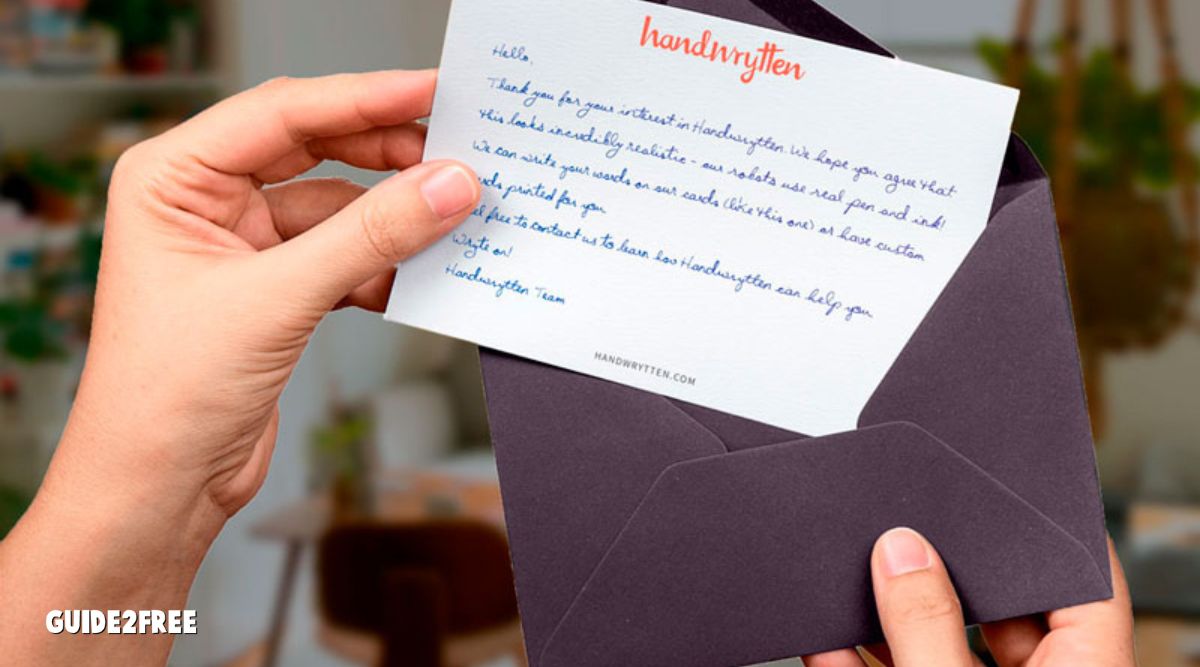 handwrytten
Hello,
Thank you for your interest in Handwrytten. We hope you agree that
this looks incredibly realistic - our robots use real pen and ink!
We can write your words on our cards (like this one) or have custom
printed for you
free to contact us to learn how Handwrytten can help you
Wryte on!
Handwrytten Team
HANDWRYTTEN.COM
GUIDE2FREE